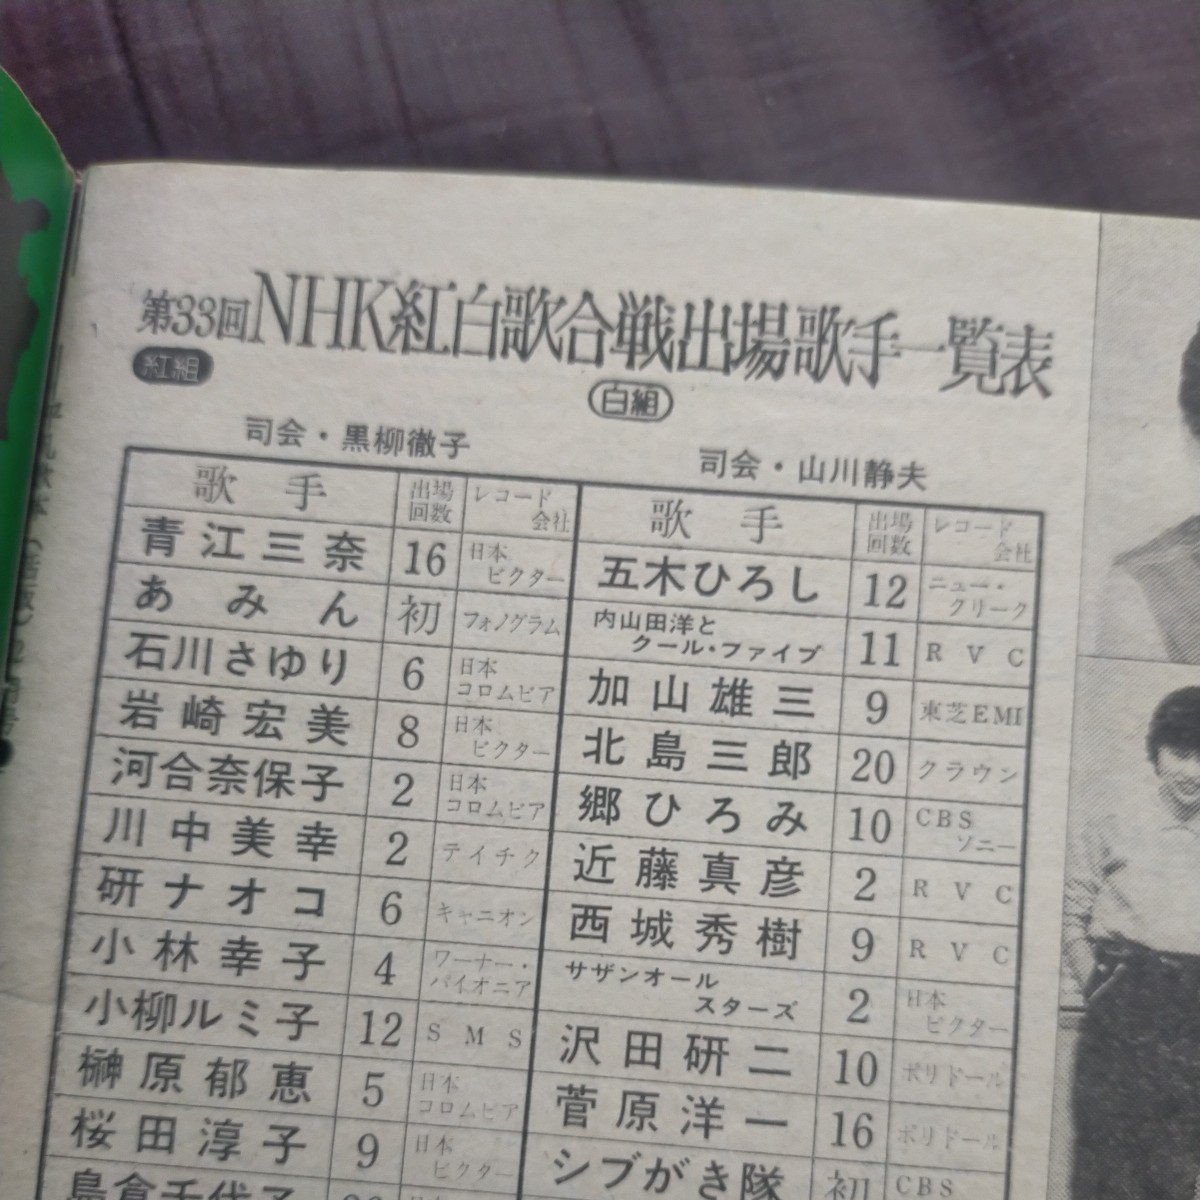 第33回NHK紅白歌合戦出場歌手一覧表
紅組
司会・黒柳徹子
歌手 出場回数 レコード会社
青江三奈 16 日本ビクター
あみん 初 フォノグラム
石川さゆり 6 日本コロムビア
岩崎宏美 8 日本ビクター
河合奈保子 2 日本コロムビア
川中美幸 2 テイチク
研ナオコ 6 キャニオン
小林幸子 4 ワーナー・パイオニア
小柳ルミ子 12 SMS
榊原郁恵 5 日本コロムビア
桜田淳子 9 日本ビクター
島倉千代子
白組
司会・山川静夫
歌手 出場回数 レコード会社
五木ひろし 12 ニュー・クリーク
内山田洋とクール・ファイブ 11 RVC
加山雄三 9 東芝EMI
北島三郎 20 クラウン
郷ひろみ 10 CBSソニー
近藤真彦 2 RVC
西城秀樹 9 RVC
サザンオールスターズ 2 日本ビクター
沢田研二 10 ポリドール
菅原洋一 16 ポリドール
シブがき隊 初 CBS